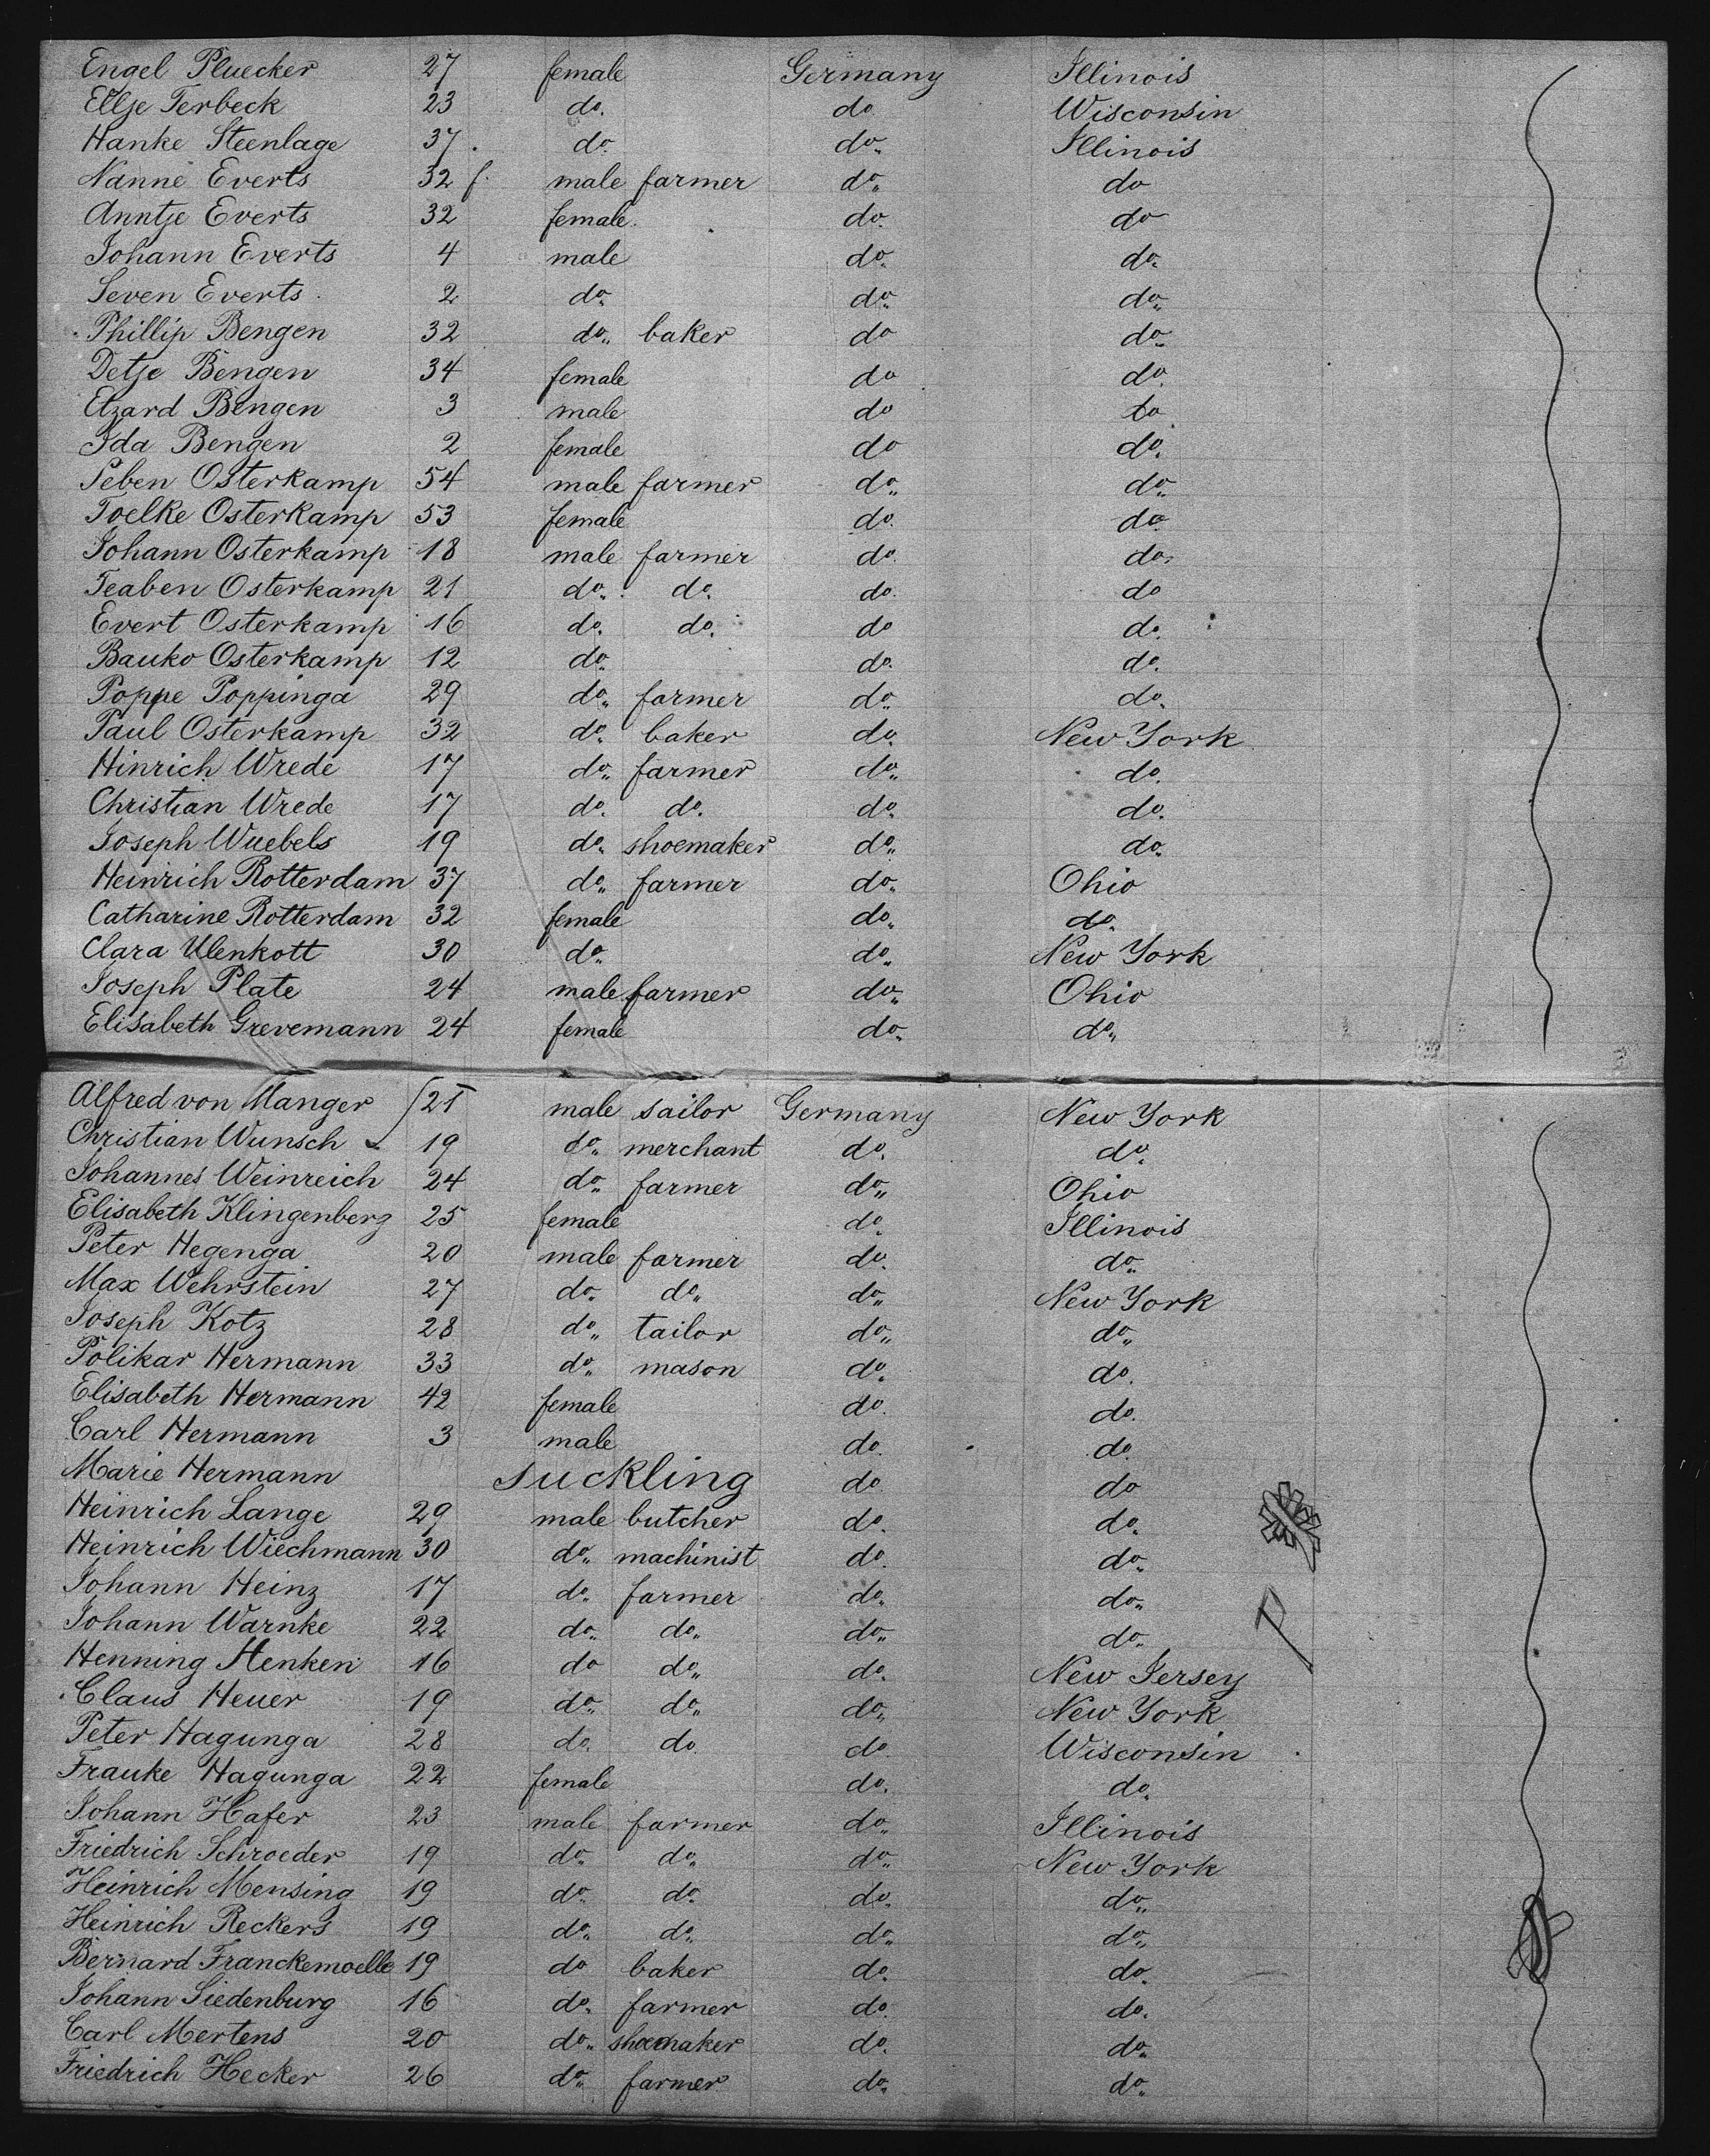 Engel Pluecker 27 female Germany Illinois
Eilje Terbeck 23 do. do Wisconsin
Hanke Steenlage 37. do. do. Illinois
Nanne Everts 32 f. male farmer do. do
Anntje Everts 32 female. do. do
Johann Everts 4 male do. do.
Seven Everts 2 do. do. do.
Phillip Bengen 32 do. baker do do.
Detje Bengen 34 female do do.
Etzard Bengen 3 male do to
Ida Bengen 2 female do do.
Peben Osterkamp 54 male farmer do. do.
Toelke Osterkamp 53 female do. do.
Johann Osterkamp 18 male farmer do. do.
Teaben Osterkamp 21 do. do. do. do
Evert Osterkamp 16 do. do. do do.
Bauko Osterkamp 12 do. do. do.
Poppe Poppinga 29 do. farmer do. do.
Paul Osterkamp 32 do. baker do. New York
Hinrich Wrede 17 do. farmer do. do.
Christian Wrede 17 do. do. do. do.
Joseph Wuebels 19 do. shoemaker do. do.
Heinrich Rotterdam 37 do. farmer do. Ohio
Catharine Rotterdam 32 female do. do.
Clara Ulenkott 30 do. do. New York
Joseph Plate 24 male farmer do. Ohio
Elisabeth Grevemann 24 female do. do.
Alfred von Manger 21 male sailor Germany New York
Christian Wunsch 19 do. merchant do. do.
Johannes Weinreich 24 do. farmer do. Ohio
Elisabeth Klingenberg 25 female do. Illinois
Peter Hegenga 20 male farmer do. do.
Max Wehrstein 27 do. do. do. New York
Joseph Kotz 28 do. tailor do. do.
Polikar Hermann 33 do. mason do. do.
Elisabeth Hermann 42 female do. do.
Carl Hermann 3 male do. do.
Marie Hermann suckling do. do
Heinrich Lange 29 male butcher do. do.
Heinrich Wiechmann 30 do. machinist do. do.
Johann Heinz 17 do. farmer do. do.
Johann Warnke 22 do. do. do. do.
Henning Henken 16 do do. do. New Jersey
Claus Heuer 19 do. do. do. New York
Peter Hagunga 28 do. do. do. Wisconsin
Frauke Hagunga 22 female do. do.
Johann Hafer 23 male farmer do. Illinois
Friedrich Schroeder 19 do. do. do. New York
Heinrich Mensing 19 do. do. do. do.
Heinrich Reckers 19 do. do. do. do.
Bernard Franckemoelle 19 do baker do. do.
Johann Siedenburg 16 do. farmer do. do.
Carl Mertens 20 do. shoemaker do. do.
Friedrich Hecker 26 do. farmer do. do.